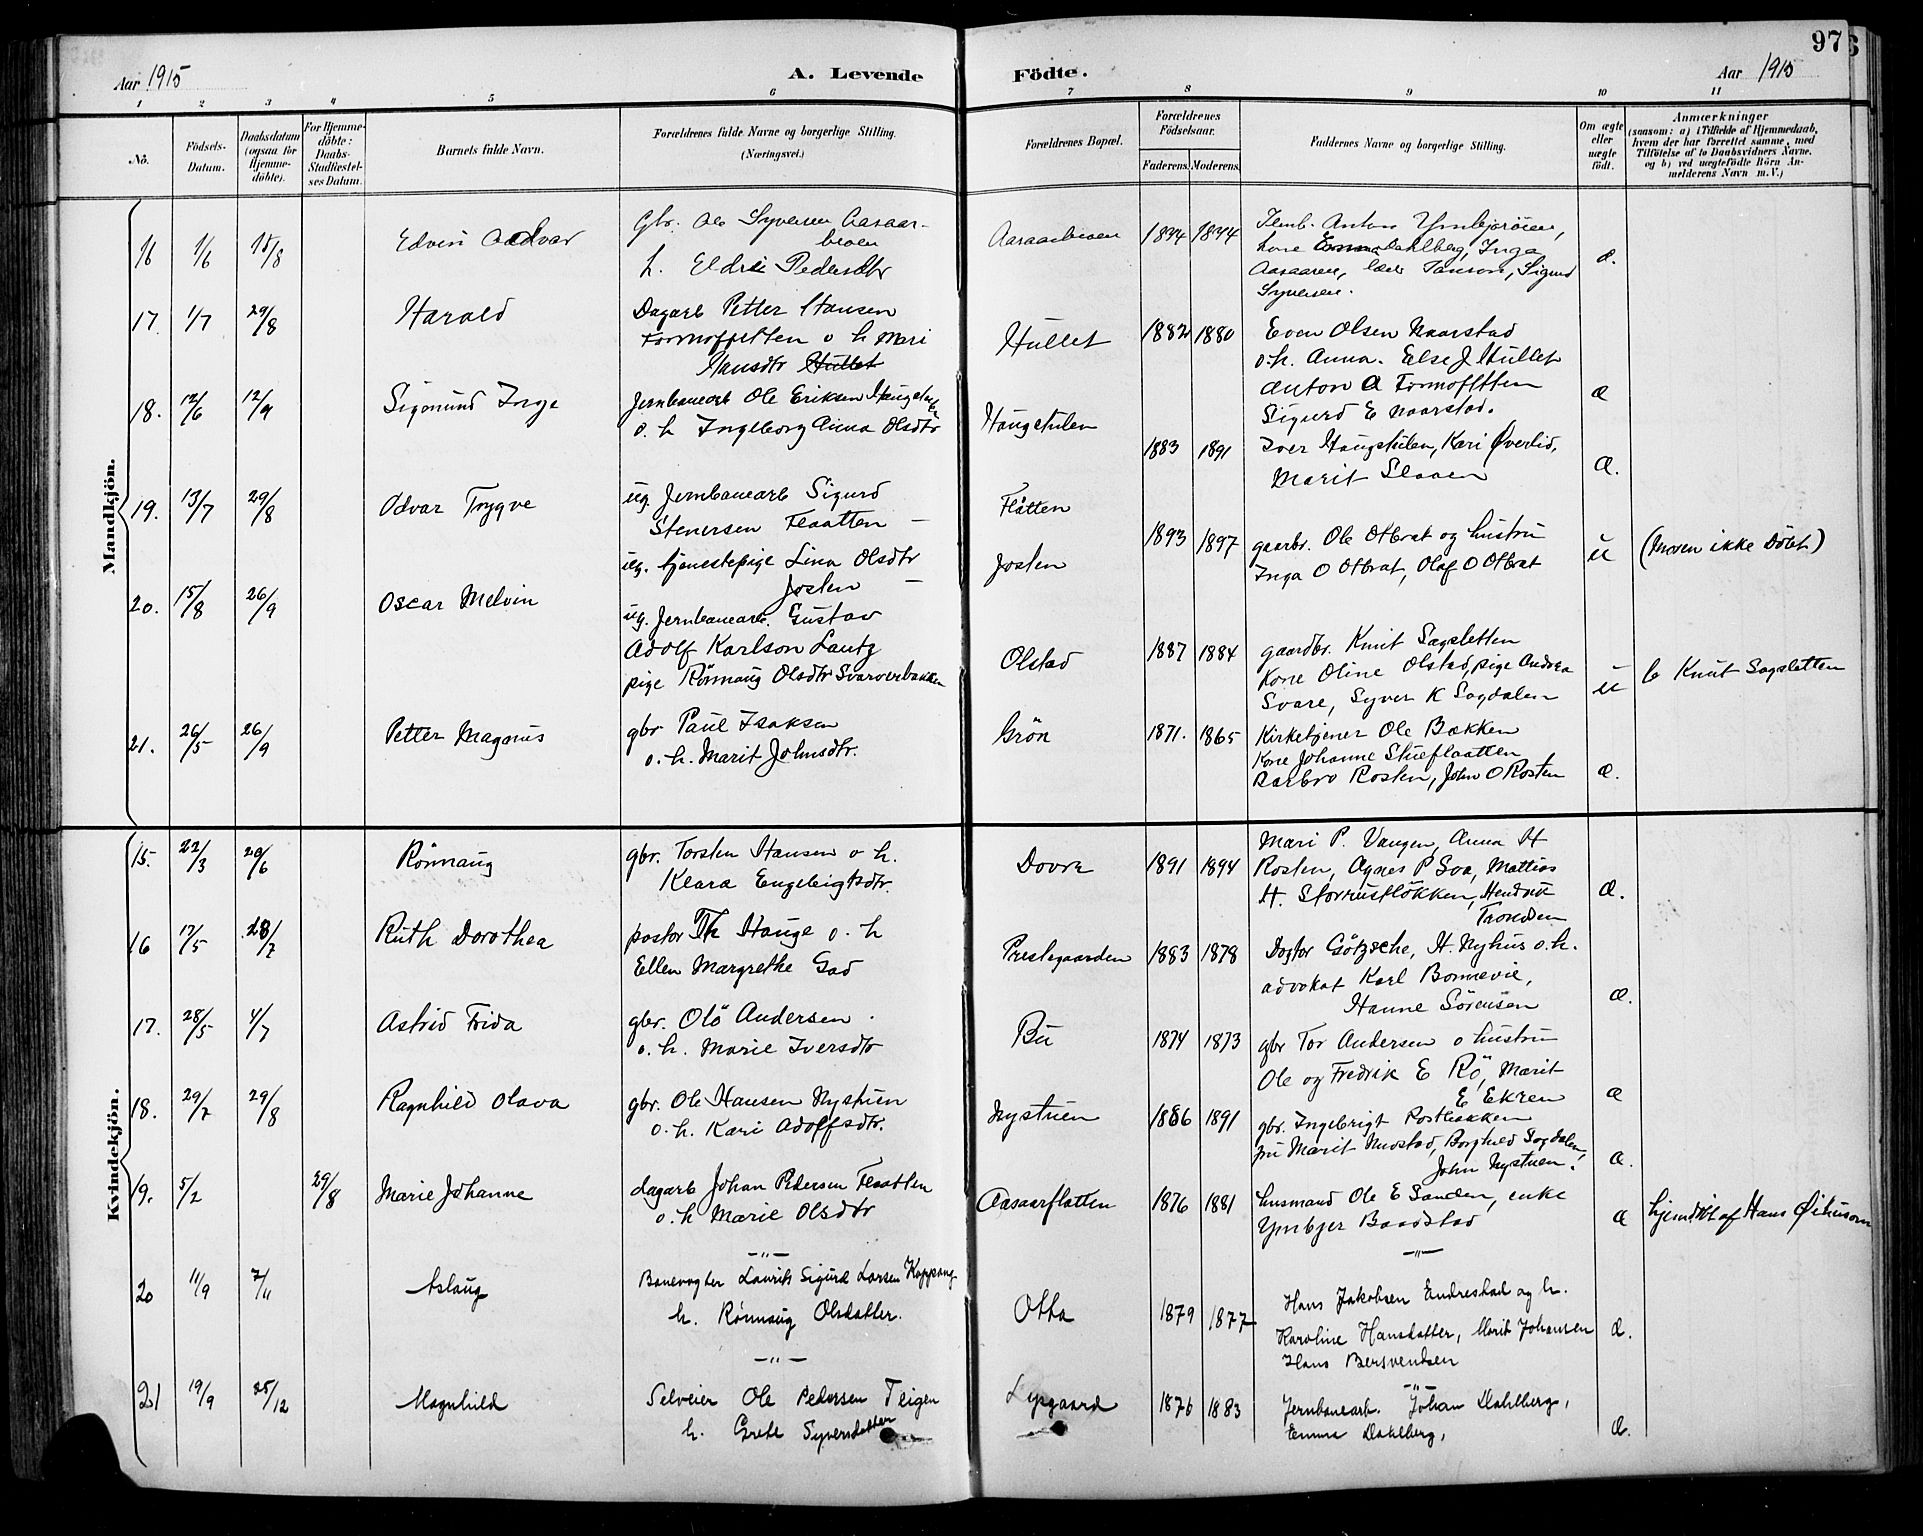 97
Aar 1915
A. Levende
Födte.
Aar 1915
1 2 3 4 5 6 7 8 9 10 11
No.
Födsels-
Datum.
Daabsdatum
(ogsaa for
Hjemme-
döbte).
For Hjemme-
döbte:
Daabs-
Stadfæstel-
ses Datum.
Barnets fulde Navn.
Forældrenes fulde Navne og borgerlige Stilling.
(Næringsvei.)
Forældrenes Bopæl.
Forældrenes
Födselsaar.
Faderens. Moderens.
Faddernes Navne og borgerlige Stilling.
Om ægte
eller
uægte
født.
Anmærkninger
(saasom: a) i Tilfælde af Hjemmedaab,
hvem der har forrettet samme, med
Tilföielse af to Daabsvidners Navne.
og b) ved uægtefödte Börn An-
melderens Navn m. V.)
Mandkjön.
16 1/6 15/8 Edvin Oddvar
Gbr. Ole Syversen Aasaar-
broen
h. Eldri Pedersdtr
Aasaarbroen
Anton Ymbjøröien,
kone Dahlberg, Inga
Aasaaren, Sigurd
Syversen.
17. 1/7 29/8 Harald
Dagarb Petter Hansen
Formofletten o h Mari
Hansdtr Hullet
Hullet 1882 1880
Even Olsen Naarstad
o.h. Anna. Else J Hullet
Anton A Formofltten
Sigurd E Naarstad.
æ
18. 12/6 12/9 Sigmund Inge
Jernbanearb Ole Eriksen Haugstulen
o. h Ingeborg Anna Olsdtr
Haugstulen 1883 1891
Iver Haugstulen, Kari Øverlid,
Marit Slaaen
Æ.
19. 13/7 29/8 Odvar Trygve
ug. Jernbanearb Sigurd
Stenersen Flaatten –
ug. tjenestepige Lina Olsdtr
Josten –
Flåtten
Josten
1893 1897
gaarbr. Ole Otbrat og hustru
Inga O Otbrat, Olaf O Otbrat
u (Moren ikke Döbt)
20. 15/8 26/9 Oscar Melvin
ug. Jernbanearb. Gustav
Adolf Karlson Lantz
pige Rönnaug Olsdtr Svarverbakken
Olstad 1887 1884
gaardbr. Knut Sagsletten
Kone Oline Olstad, pige Andrea
Svare, Syver K Sagdalen
u b Knut Sagsletten
21. 26/5 26/9 Petter Magnus
gbr Paul Isaksen
o. h. Marit Johnsdtr.
Grön 1871. 1865
Kirketjener Ole Bakken
Kone Johanne Stueflaatten
Barbro Rosten, John O Rosten
æ.
Kvindekjön.
15. 22/3 20/6 Rönnaug
gbr. Torsten Hansen o h.
Klara Engebrigtsdtr.
Dovre 1891 1894
Mari P. Vangen, Anna H
Rosten, Agnes P Sva, Mattias
H. Storrustløkken, Hendrik
Trondsen
Æ.
16 17/5 28/7 Ruth Dorothea
pastor Th Hauge o. h
Ellen Margrethe Gad
Prestegaarden 1883 1878
Dogtor Götzsche, H. Nyhus o. h.
advokat Karl Bonnevie,
Hanne Sörensen
Æ.
17. 28/5 4/7 Astrid Frida
gbr. Olö Andersen
o. h. Marie Iversdtr
Bu 1874 1873
gbr Tor Andersen o hustru
Ole og Fredrik E Rö, Marit
E Ekren
Æ
18. 29/7 29/8 Ragnhild Olava
gbr. Ole Hansen Nystuen
o. h. Kari Adolfsdtr.
Nystuen 1886 1891
gbr. Ingebrigt Postbakken
fru Marit Musstad, Borghild Sagdalen,
John Nystuen.
Æ.
19. 5/2 29/8 Marie Johanne
dagarb Johan Pedersen Flaatten
o. h Marie Olsdtr
Aasaarflatten 1876 1881
husmand Ole E Sanden, enke
Ymbjør Baadstad
Æ hjemdöbt af Hans Øihusom
20 11/9 7/11 Aslaug
–"–
Banevogter Laurits Sigurd Larsen Koppang
h. Rönnaug Olsdatter.
Otta 1879 1877
–"–
Hans Jakobsen Endrestad og h.
Karoline Hansdatter, Marit Johansen
Hans Bersvendsen
æ.
21 19/9 25/12 Magnhild
–"–
Selveier Ole Pedersen Teigen
h. Grete Syversdatter
Lyngaard 1876 1883
–"–
Jernbanearb. Johan Dahlberg,
Emma Dahlberg,
æ.